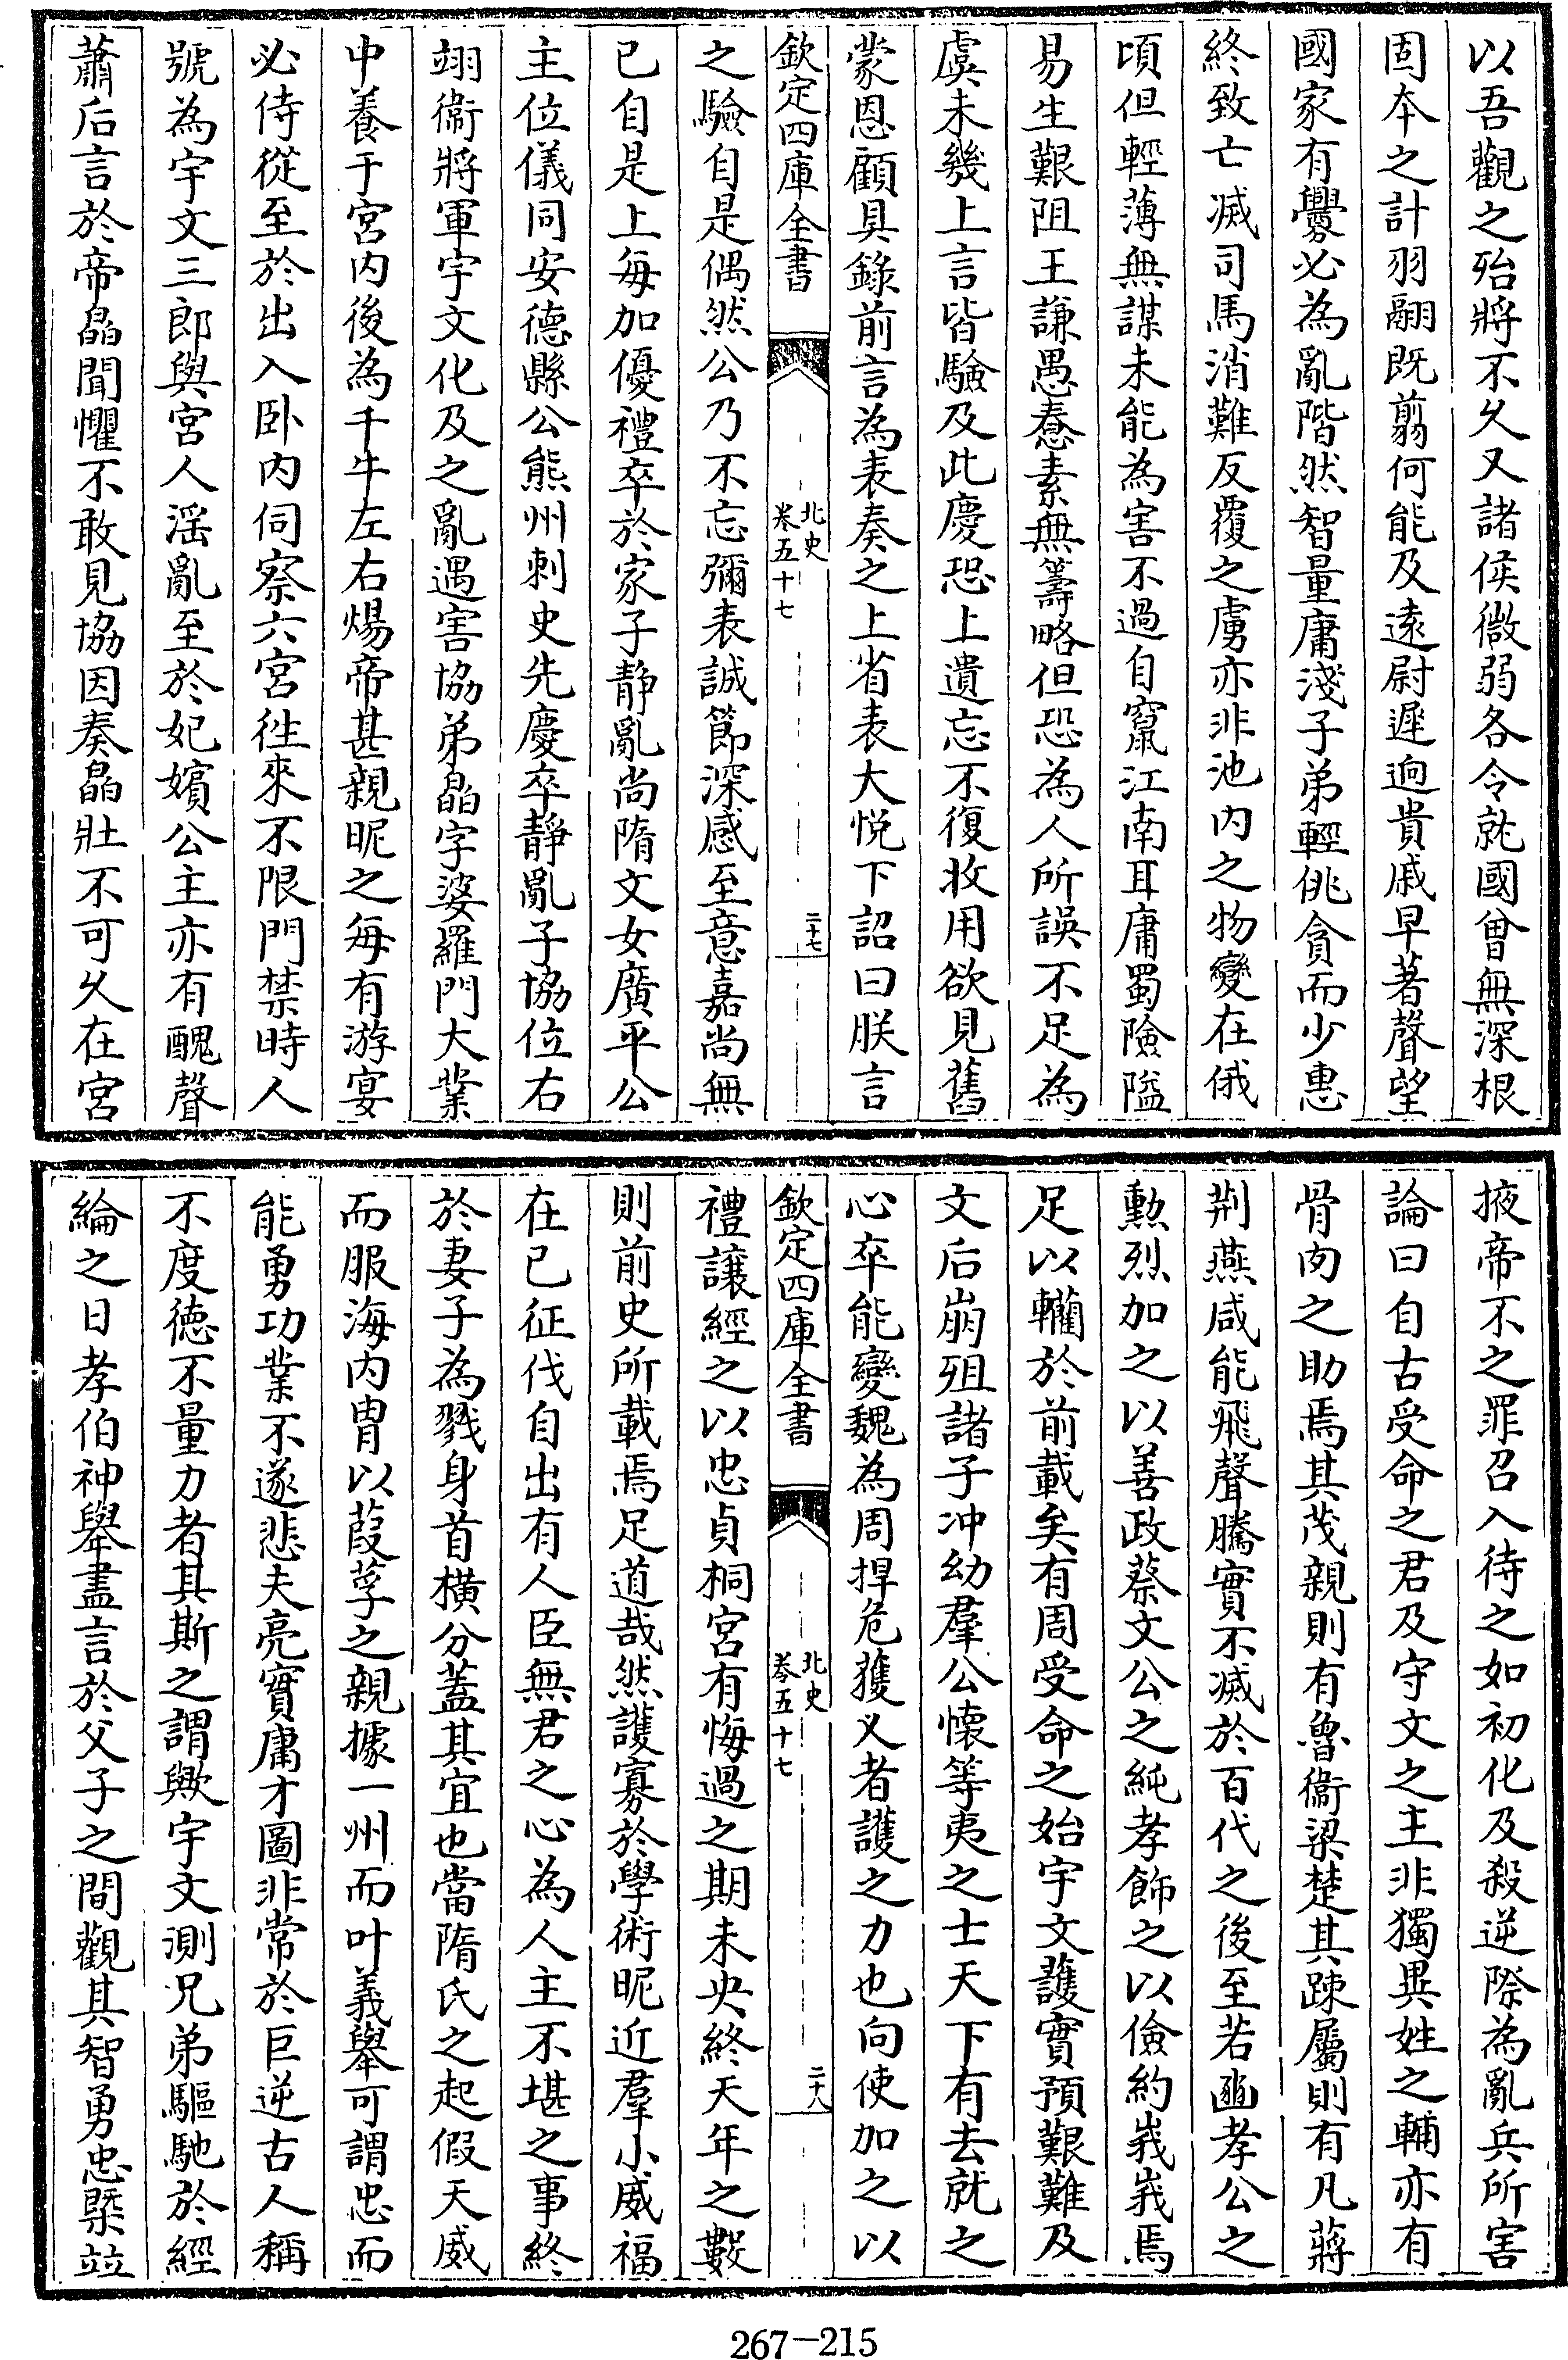 以吾觀之殆將不久又諸侯微弱各令就國曾無深根
固本之計羽翮既翦何能及遠尉遲迥貴戚早著聲望
國家有釁必為亂階然智量庸淺子弟輕佻貪而少惠
終致亡滅司馬消難反覆之虜亦非池内之物變在俄
頃但輕薄無謀未能為害不過自竄江南耳庸蜀險隘
易生艱阻王謙愚惷素無籌略但恐為人所誤不足為
虞未幾上言皆驗及此慶恐上遺忘不復收用欲見舊
蒙恩顧具錄前言為表奏之上省表大悅下詔曰朕言
欽定四庫全書
北史
卷五十七
二十七
之驗自是偶然公乃不忘彌表誠節深感至意嘉尚無
已自是上每加優禮卒於家子静亂尚隋文女廣平公
主位儀同安德縣公熊州刺史先慶卒靜亂子協位右
翊衞將軍宇文化及之亂遇害協弟皛字婆羅門大業
中養于宮内後為千牛左右煬帝甚親昵之每有游宴
必侍從至於出入卧内伺察六宮徃來不限門禁時人
號為宇文三郎與宮人淫亂至於妃嬪公主亦有醜聲
蕭后言於帝皛聞懼不敢見協因奏皛壯不可久在宮
掖帝不之罪召入待之如初化及殺逆際為亂兵所害
論曰自古受命之君及守文之主非獨異姓之輔亦有
骨肉之助焉其茂親則有魯衞梁楚其疎屬則有凡蔣
荆燕咸能飛聲騰實不滅於百代之後至若豳孝公之
勲烈加之以善政蔡文公之純孝飾之以儉約峩峩焉
足以轥於前載矣有周受命之始宇文護實預艱難及
文后崩殂諸子冲幼羣公懷等夷之士天下有去就之
心卒能變魏為周捍危獲乂者護之力也向使加之以
欽定四庫全書
北史
卷五十七
二十八
禮讓經之以忠貞桐宮有悔過之期未央終天年之數
則前史所載焉足道哉然護寡於學術昵近羣小威福
在已征伐自出有人臣無君之心為人主不堪之事終
於妻子為戮身首横分蓋其宜也當隋氏之起假天威
而服海内胄以葭莩之親據一州而叶義舉可謂忠而
能勇功業不遂悲夫亮實庸才圖非常於巨逆古人稱
不度徳不量力者其斯之謂歟宇文測兄弟驅馳於經
綸之日孝伯神舉盡言於父子之間觀其智勇忠槩竝
267-215